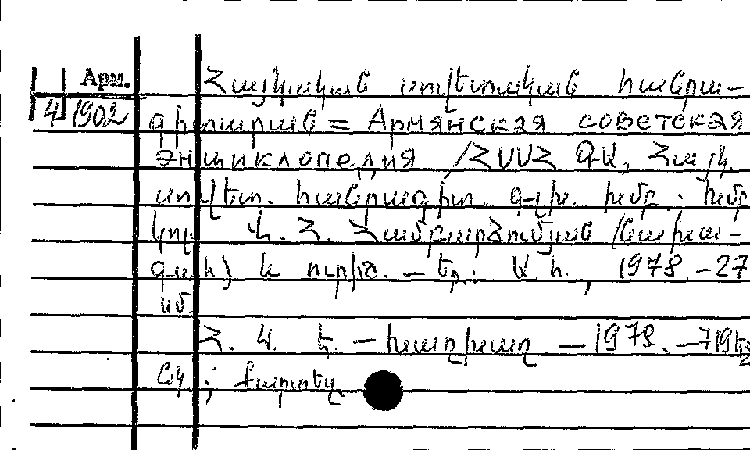 Арм. Հայկական սովետական հանրա-
4 1902 գիտարան = Армянская советская
энциклопедия /ՀՍՍՀ ԳԱ, Հայկ.
սովետ. հանրագիտ. գլխ. խմբ.: խմբ
կոլ. Վ. Հ. Համբարձումյան /նախա-
գահ/ և ուրիշ. — Եր.: ԱՀ, 1978 - 27
սմ
Հ. 4. — 1978. — 719 էջ
նկ.; քարտեզ